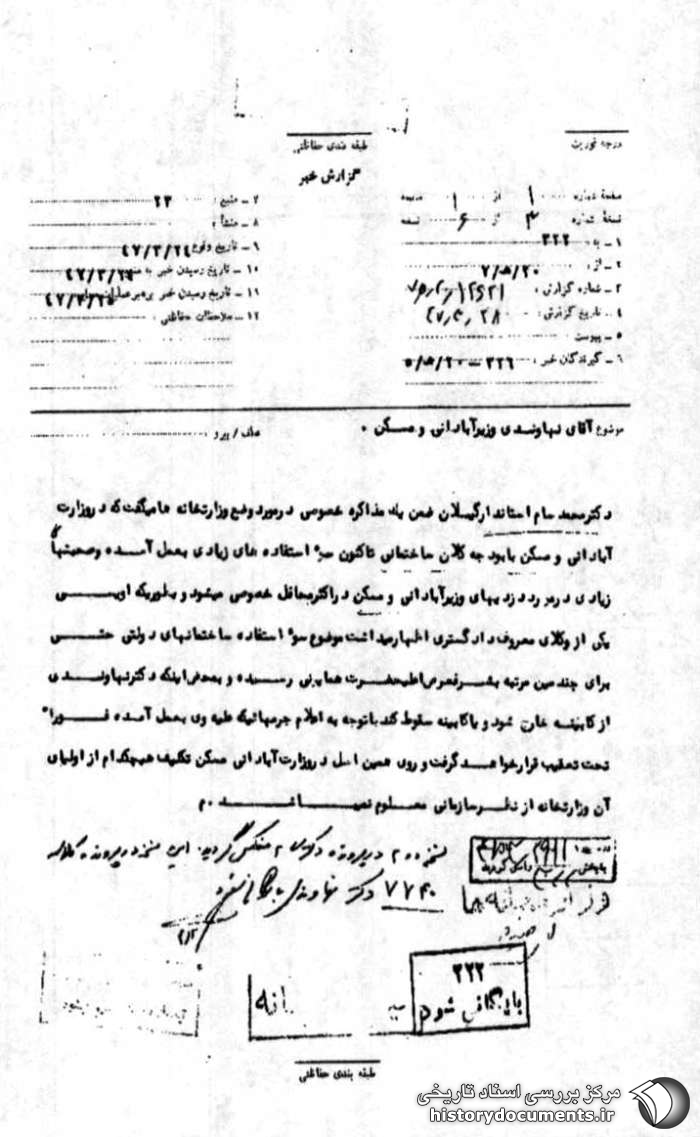 درجه فوریت
طبقه بندی حفاظتی
گزارش خبر
صفحه شماره ۱ از ۱ صفحه
نسخه شماره ۳ از ۶ نسخه
۱ ـ به : ۳۲۲
۲ ـ از : ۲۰/ه/۷
۳ ـ شماره گزارش :
۴ ـ تاریخ گزارش : ۲۸
۵ ـ پیوست
۶ ـ گیرندگان خبر : ۳۲۶ ـ ۲۰/ه/۵
۷ ـ منبع : ۲۳
۸ ـ منشأ :
۹ ـ تاریخ وقوع ۴۷/۳/۲۴
۱۰ ـ تاریخ رسیدن خبر به منبع
۱۱ ـ تاریخ رسیدن خبر برهبر عملیات
۱۲ ـ ملاحظات حفاظتی :
موضوع آقای نهاوندی وزیرآبادانی و مسکن .
عطف / پیرو
دکترمحمد سام استاندارگیلان ضمن یك مذاکره خصوصی درمورد وضع وزارتخانه ها میگفت که در وزارت
آبادانی و مسکن بابودجه کلان ساختمانی تاکنون سوء استفاده های زیادی بعمل آمده وصحبتهای
زیادی درمورد دزدیهای وزیرآبادانی و مسکن دراکثرمحافل خصوصی میشود و بطوریکه اویسی
یکی از وکلای معروف دادگستری اظهارمیداشت موضوع سوء استفاده ساختمانهای دولتی حتی
برای چندمین مرتبه بشرفعرض اعلیحضرت همایونی رسیده و بمحض اینکه دکترنهاوندی
از کابینه خارج شود و یا کابینه سقوط کند باتوجه به اعلام جرمهائیکه علیه وی بعمل آمده فورا"
تحت تعقیب قرارخواهد گرفت و روی همین اصل در وزارت آبادانی مسکن تکلیف هیچکدام از اولیای
آن وزارتخانه از نظر سازمانی معلوم نمیباشد . م
نسخه ۲ در پرونده دکوری ۲ منعکس گردید. این نسخه در پرونده کلاسه
۷۷۴۰ دکتر نهاوندی بایگانی شود
۳۲۲
بایگانی شود
طبقه بندی حفاظتی
مرکز بررسی اسناد تاریخی
historydocuments.ir